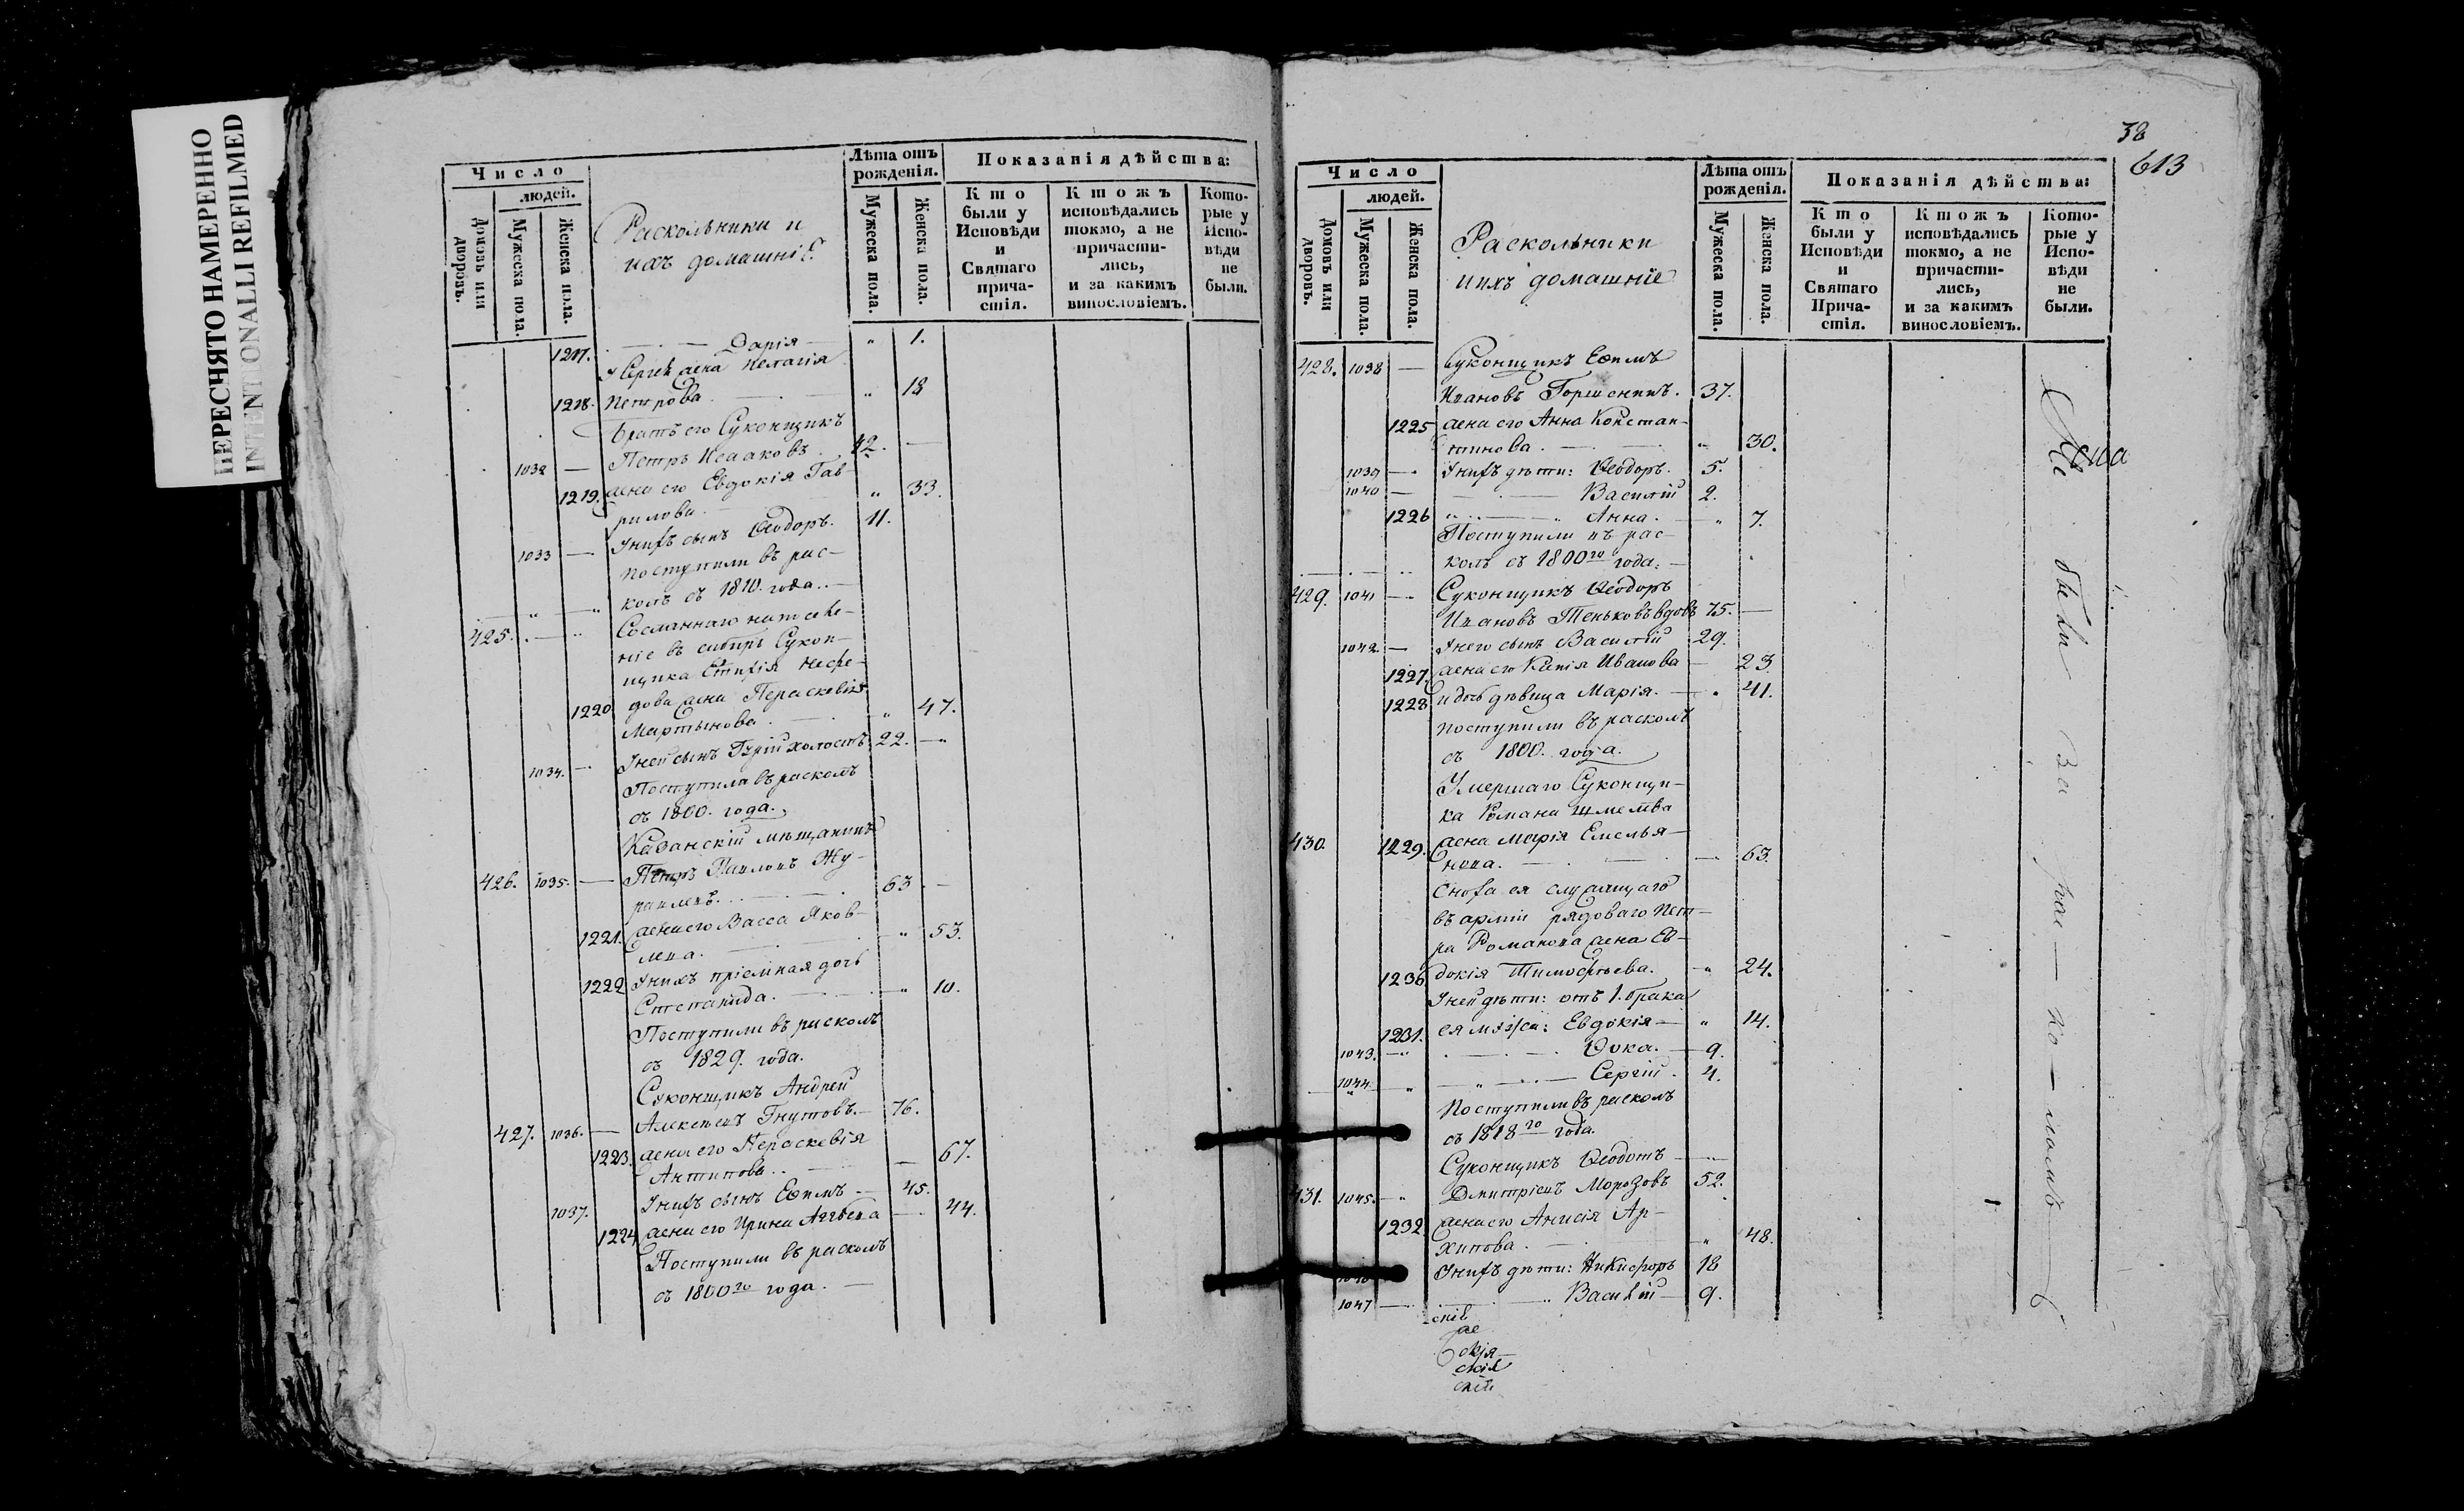 ПЕРЕСНЯТО НАМЕРЕННО
INTENTIONALLI REFILMED
Число
людей.
Домовъ или дворовъ.
Мужеска пола.
Женска пола.
Раскольники и
ихъ домашніе
Лѣта отъ рожденія.
Мужеска пола.
Женска пола.
Показанія дѣйства:
Кто были у Исповѣди и Святаго причастія.
Ктожъ исповѣдались токмо, а не причастились, и за какимъ винословіемъ.
Которые у Исповѣди не были.
1217. Дарія 1.
у Сергѣя жена Пелагія
1218. Петрова 18
Братъ его Суконщикъ
1032 Петръ Исааковъ 42.
1219. жена его Евдокія Гав-
рилова 33.
1033 У нихъ сынъ Ѳеодоръ. 11.
поступили въ рас-
колъ съ 1810. года.
425. Сосланнаго на поселе-
ніе въ сибирь Сукон-
щика
1220 дова жена Параскевія
Мартынова 47.
1034. У ней сынъ Гурій холостъ 22.
Поступили въ расколъ
съ 1800. года.
Казанскій мѣщанинъ
426. 1035. Петръ Павловъ Жу-
равлевъ. 63
1221. жена его Васса Яков-
лева. 53.
1222 У нихъ пріемная дочь
Степанида. 10.
Поступили въ расколъ
съ 1829. года.
Суконщикъ Андрей
427. 1036. Алексѣевъ Гнутовъ. 76.
1223. жена его Параскевія
Антипова.. 67.
1037. У нихъ сынъ Еѳимъ 45.
1224 жена его Ирина 44.
Поступили въ расколъ
съ 1800го года.
38
613
Число
людей.
Домовъ или дворовъ.
Мужеска пола.
Женска пола.
Раскольники
и ихъ домашніе
Лѣта отъ рожденія.
Мужеска пола.
Женска пола.
Показанія дѣйства:
Кто были у Исповѣди и Святаго Причастія.
Ктожъ исповѣдались токмо, а не причастились, и за какимъ винословіемъ.
Которые у Исповѣди не были.
428. 1038 Суконщикъ Еѳимъ
Ивановъ Горшенинъ. 37.
1225 жена его Анна Констан-
тинова. 30.
1039 У нихъ дѣти: Ѳеодоръ. 5.
1040 Василій 2.
1226 Анна. 7.
Поступили въ рас-
колъ съ 1800го года.
429. 1041 Суконщикъ Ѳеодоръ
Ивановъ Теньковъ вдовъ 75.
1042. У него сынъ Василій 29.
1227. жена его Ксенія Иванова 23.
1228 и дочь дѣвица Марія. 41.
поступили въ расколъ
съ 1800. года.
Умершаго Суконщи-
ка Романа
430. 1229. жена Марія Емелья-
нова. 63.
Сноха ея служащаго
въ арміи рядоваго Пет-
ра Романова жена Ев-
1230 докія Тимоѳеева. 24.
У ней дѣти: отъ 1. брака
1231. ея мужа: Евдокія 14.
1043. Ѳока. 9.
1044 Сергій. 4.
Поступили въ расколъ
съ 1818го года.
Суконщикъ Ѳеодотъ
431. 1045. Дмитріевъ Морозовъ 52.
1232. жена его Анисія Ар-
хипова. 48.
У нихъ дѣти: Никифоръ 18
1047 Василій 9.
Не были за рас-ко-ломъ